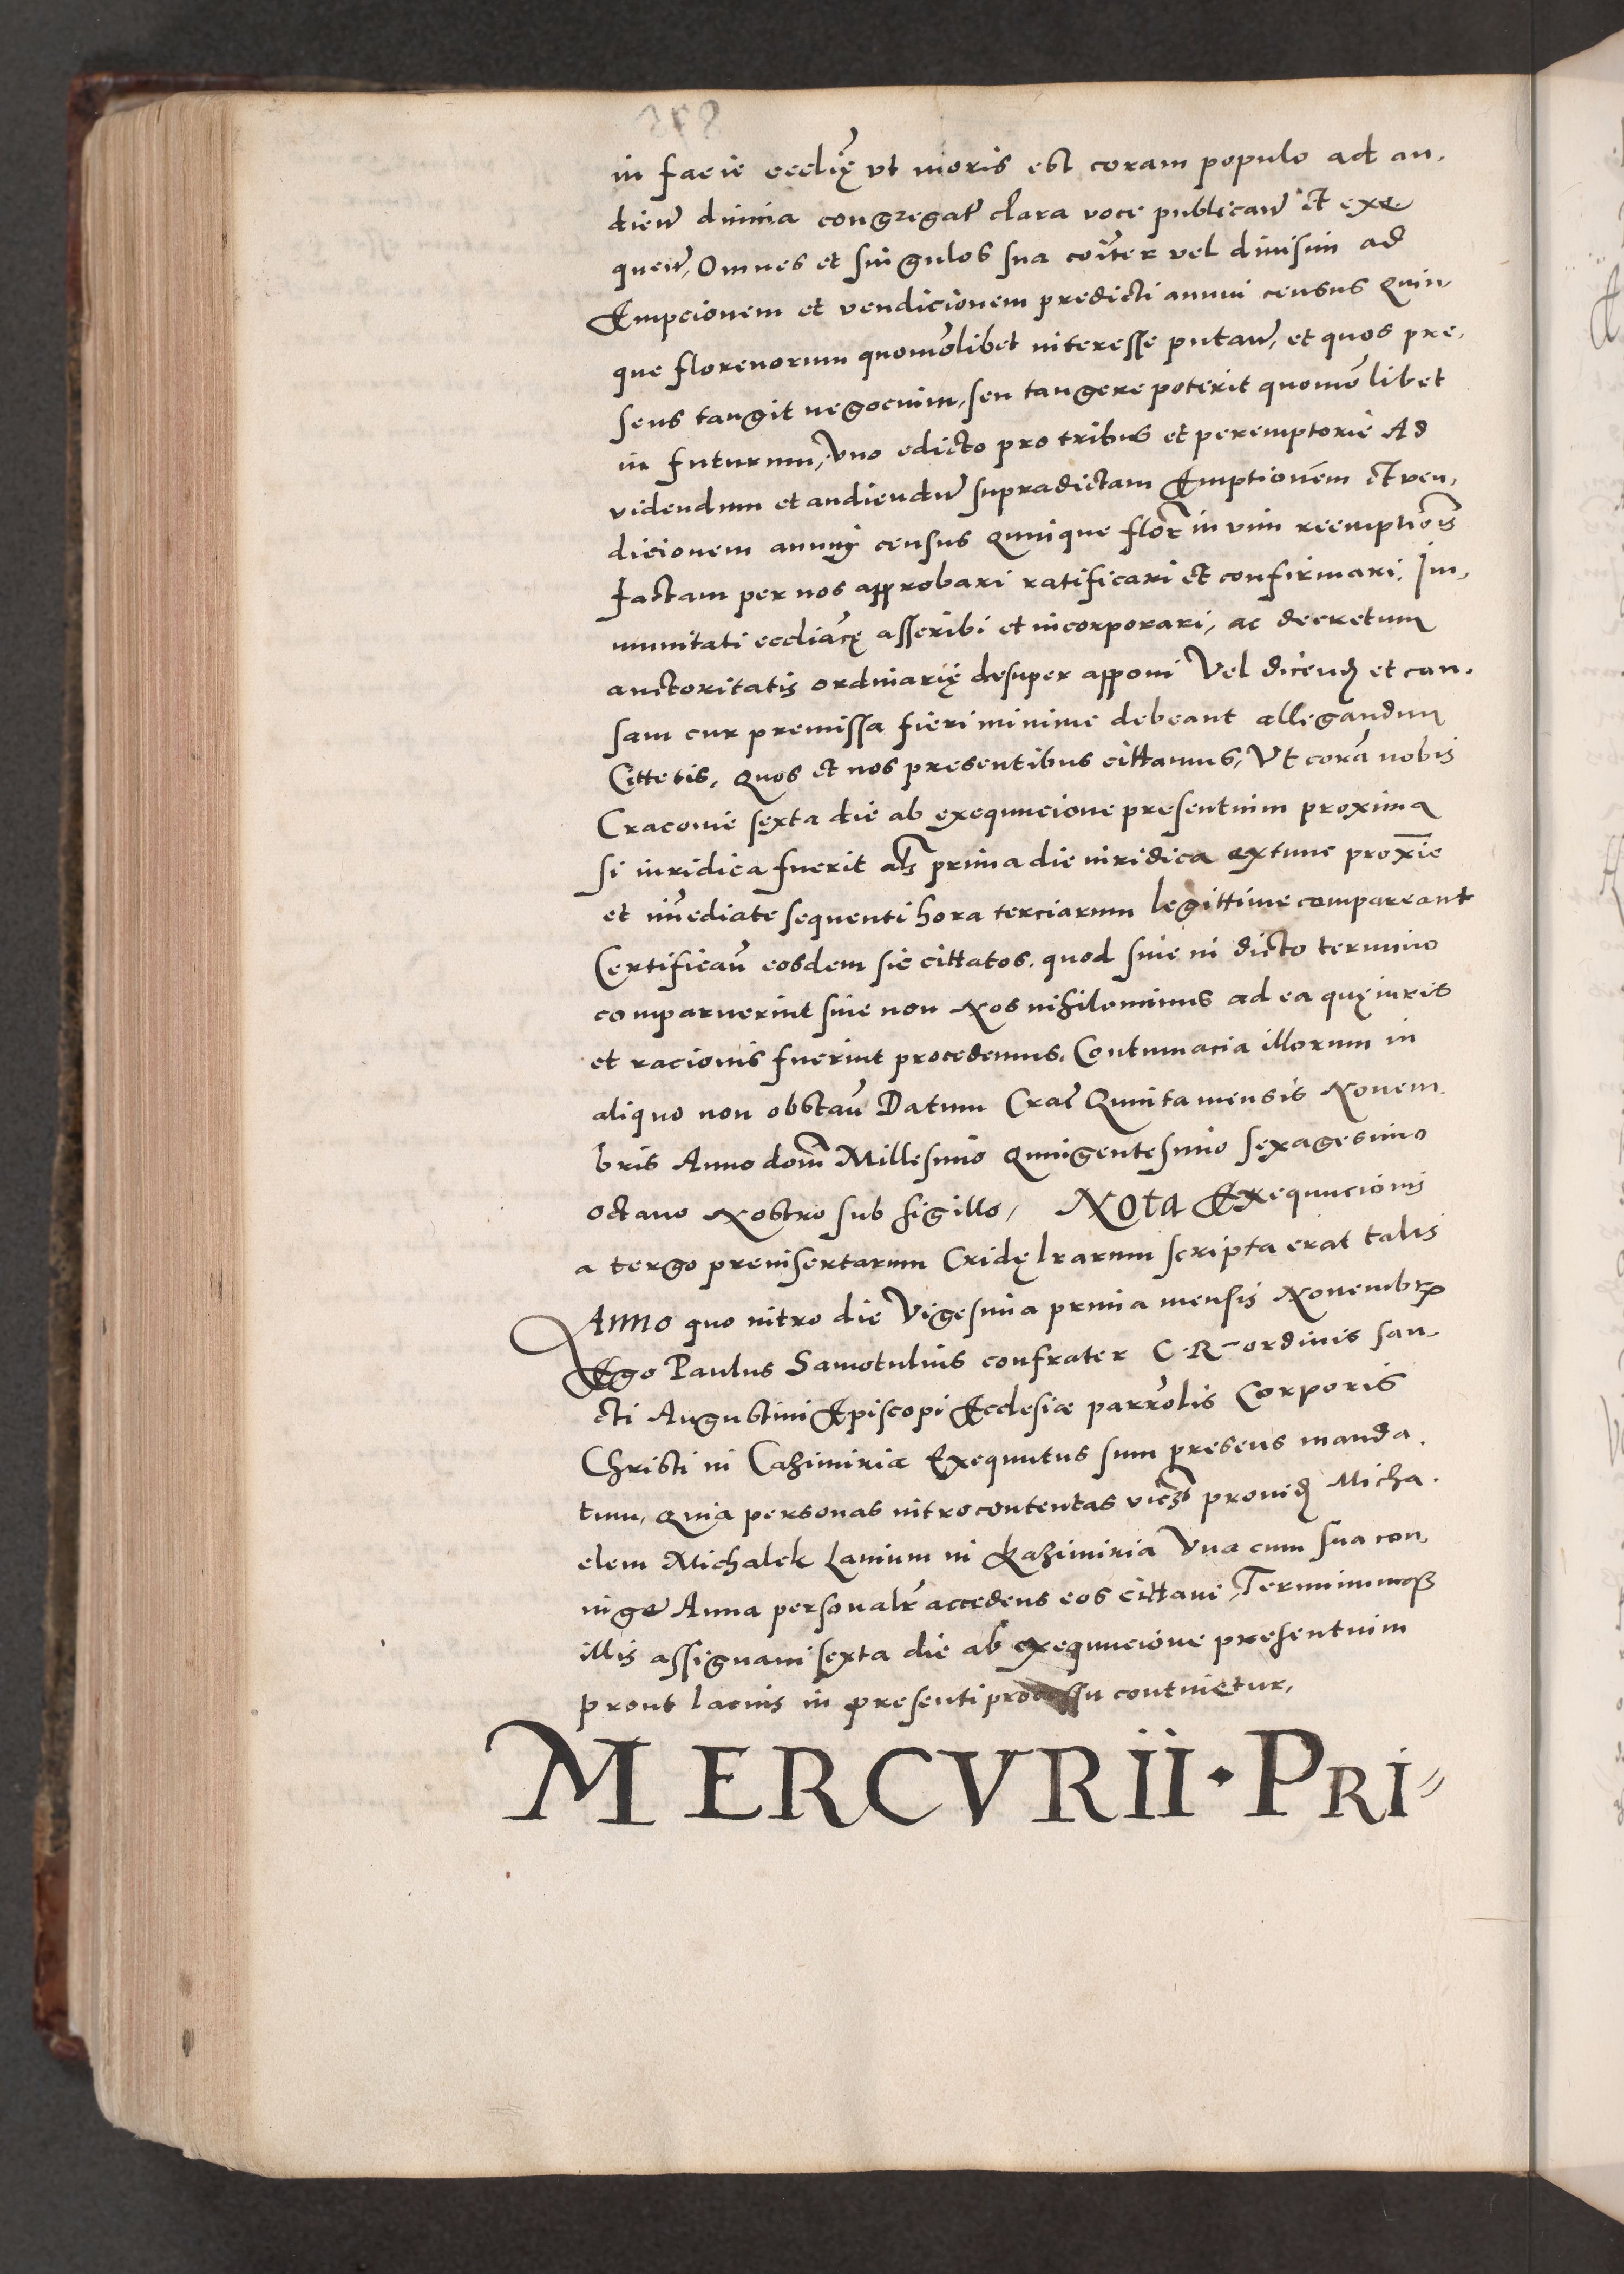 in facie ecclię vt moris est coram populo ad au.
dien̄ diuina congregat̄ clara voce publican̄ et exe
quen̄, Omnes et singulos sua coīter vel diuisim ad
Empcionem et vendicionem predicti annui census Quin,
que florenorum quomōlibet interesse putan̄, et quos pre,
sens tangit negocium, seu tangere poterit quomōlibet
in futurum, Vno edicto pro tribus et peremptorie Ad
videndum et audiendū supradictam Emptionēm et ven,
dicionem annuj census Quinque flor̄ in vim reemptiōis
factam per nos approbari ratificari et confirmari. Im,
munitati eccliacę asscribi et incorporari, ac decretum
auctoritatis ordinarię desuper apponi Vel dicend et cau.
sam cur premissa fieri minime debeant allegandum
Cittetis, Quos et nos presentibus cittamus, Vt corā nobis
Cracouie sexta die ab exequucione presentium proxima
si iuridica fuerit als prima die iuridica extunc proxīe
et īmediate sequenti hora terciarum legittime compareant
Certifican̄ eosdem sic cittatos. quod siue in dicto termino
comparuerint siue non Nos nihilominus ad ea quę iuris
et racionis fuerint procedemus, Contumacia illorum in
aliquo non obstan̄ Datum Crac̄ Quinta mensis Nouem.
bris Anno dom̄ Millesimo Quingentesimo sexagesimo
octauo Nostro sub sigillo, NOTA Exequucionis
a tergo preinsertarum Cridę lrarum scripta erat talis
ANNO quo intro die Vigesima prima mensis Nouembr
Ego Paulus Samotulius confrater C. R. ordinis san.
cti Augustini Episcopi Ecclesiæ parrōlis Corporis
Christi in Cazimiria Exequutus sum presens manda.
tum, Quia personas introcontentas vicz prouid Micha.
elem Michalek Lanium in Kazimiria Vna cum sua con,
iuge Anna personalr̄ accedens eos cittaui, Terminumq3
illis assignaui sexta die ab exequucione presentium
prout lacius in presenti processu continetur,
MERCVRII · PRI〃